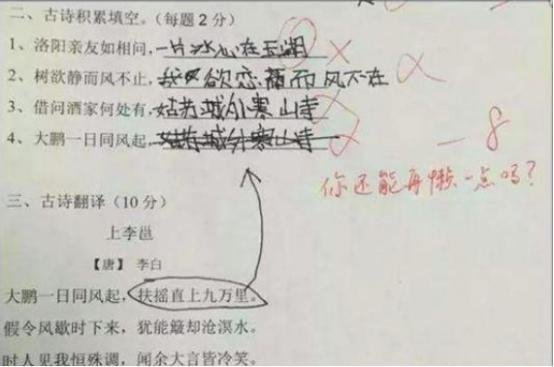 二、古诗积累填空。(每题2分)
1、洛阳亲友如相问,一片冰心在玉湖
2、树欲静而风不止,我欲恋而风不在
3、借问酒家何处有,姑苏城外寒山寺
4、大鹏一日同风起,姑苏城外寒山寺
-8
你还能再懒一点吗?
三、古诗翻译(10分)
上李邕
【唐】 李白
大鹏一日同风起,扶摇直上九万里。
假令风歇时下来,犹能簸却沧溟水。
时人见我恒殊调,闻余大言皆冷笑。